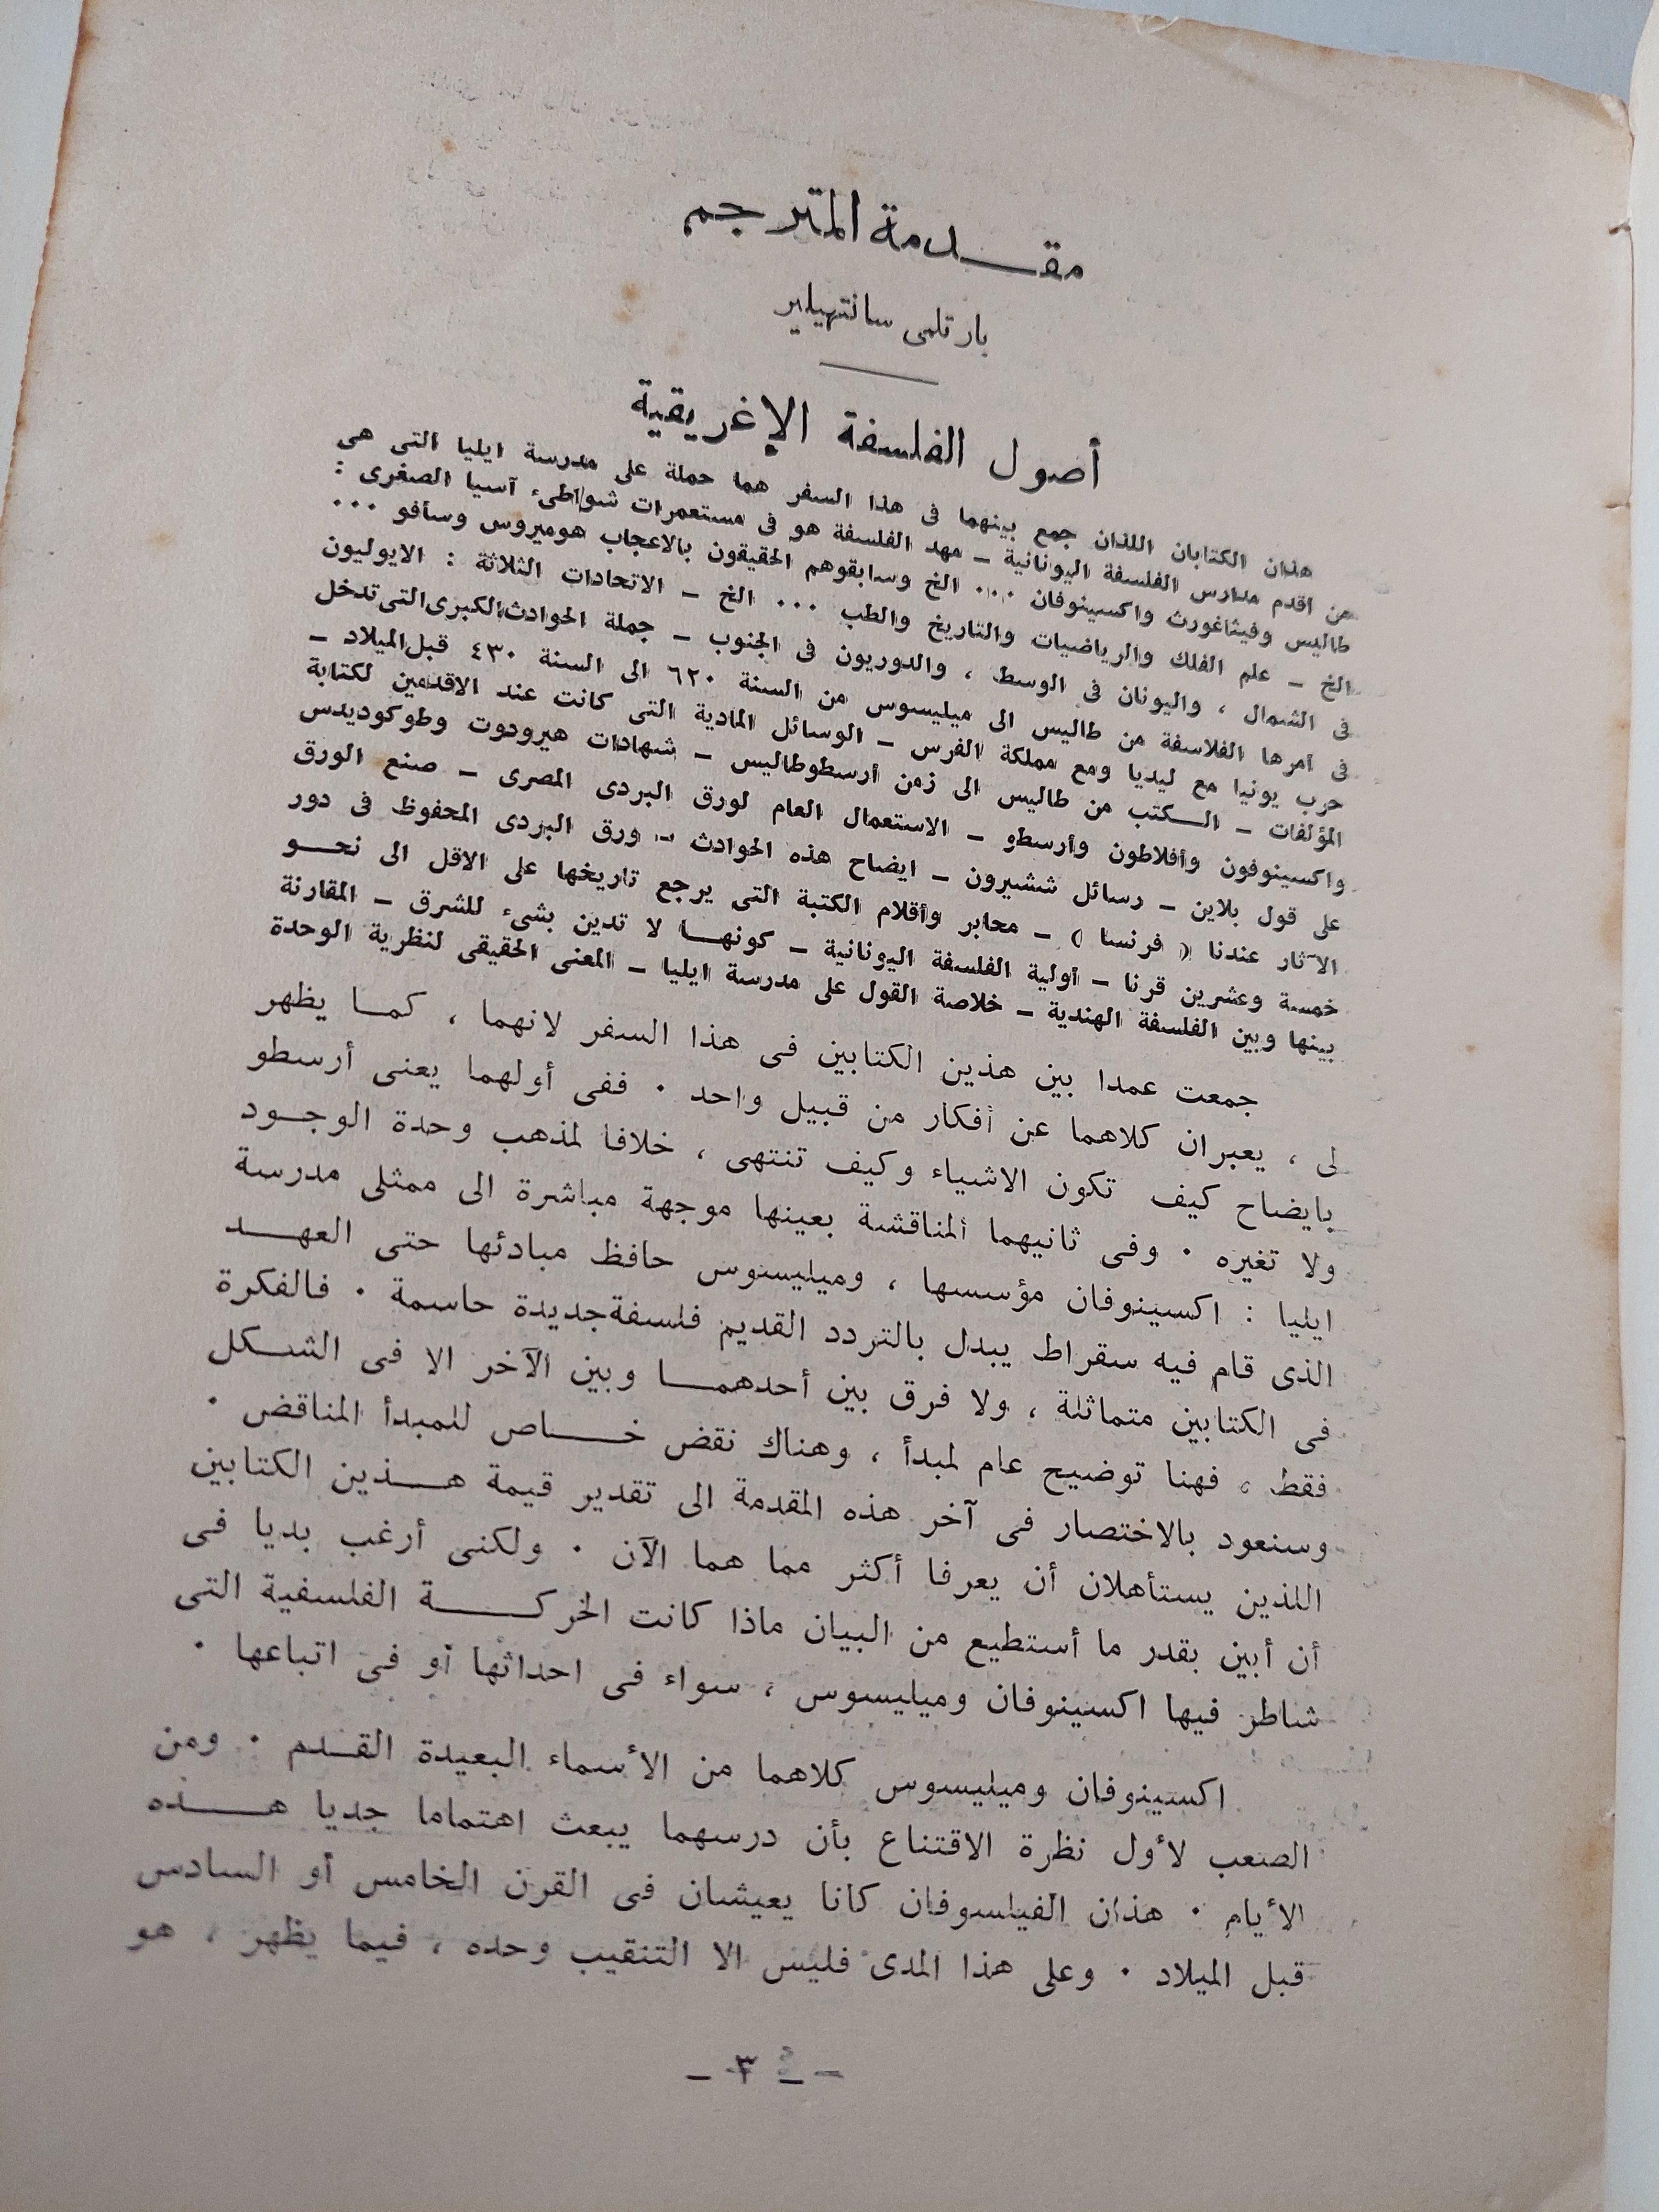 مقدمة المترجم
بارتلمى سانتهيلير
أصول الفلسفة الإغريقية
هذان الكتابان اللذان جمع بينهما فى هذا السفر هما حملة على مدرسة ايليا التى هى
من أقدم مدارس الفلسفة اليونانية – مهد الفلسفة هو فى مستعمرات شواطىء آسيا الصغرى :
طاليس وفيثاغورث واكسينوفان ... الخ وسابقوهم الحقيقون بالاعجاب هوميروس وسافو ...
الخ – علم الفلك والرياضيات والتاريخ والطب ... الخ – الاتحادات الثلاثة : الايوليون
فى الشمال ، واليونان فى الوسط ، والدوريون فى الجنوب – جملة الحوادث الكبرى التى تدخل
فى أمرها الفلاسفة من طاليس الى ميليسوس من السنة ٦٢٠ الى السنة ٤٣٠ قبل الميلاد –
حرب يونيا مع ليديا ومع مملكة الفرس – الوسائل المادية التى كانت عند الاقدمين لكتابة
المؤلفات – الكتب من طاليس الى زمن أرسطوطاليس – شهادات هيرودوت وطوكوديدس
واكسينوفون وأفلاطون وأرسطو – الاستعمال العام لورق البردى المصرى – صنع الورق
على قول بلاين – رسائل ششيرون – ايضاح هذه الحوادث – ورق البردى المحفوظ فى دور
الآثار عندنا ( فرنسا ) – محابر وأقلام الكتبة التى يرجع تاريخها على الاقل الى نحو
خمسة وعشرين قرنا – أولية الفلسفة اليونانية – كونها لا تدين بشىء للشرق – المقارنة
بينها وبين الفلسفة الهندية – خلاصة القول على مدرسة ايليا – المعنى الحقيقى لنظرية الوحدة
جمعت عمدا بين هذين الكتابين فى هذا السفر لانهما ، كما يظهر
لى ، يعبران كلاهما عن أفكار من قبيل واحد . ففى أولهما يعنى أرسطو
بايضاح كيف تكون الاشياء وكيف تنتهى ، خلافا لمذهب وحدة الوجود
ولا تغيره . وفى ثانيهما المناقشة بعينها موجهة مباشرة الى ممثلى مدرسة
ايليا : اكسينوفان مؤسسها ، وميليسوس حافظ مبادئها حتى العهد
الذى قام فيه سقراط يبدل بالتردد القديم فلسفة جديدة حاسمة . فالفكرة
فى الكتابين متماثلة ، ولا فرق بين أحدهما وبين الآخر الا فى الشكل
فقط ، فهنا توضيح عام لمبدأ ، وهناك نقض خاص للمبدأ المناقض .
وسنعود بالاختصار فى آخر هذه المقدمة الى تقدير قيمة هذين الكتابين
اللذين يستأهلان أن يعرفا أكثر مما هما الآن . ولكنى أرغب بديا فى
أن أبين بقدر ما أستطيع من البيان ماذا كانت الحركة الفلسفية التى
شاطر فيها اكسينوفان وميليسوس ، سواء فى احداثها أو فى اتباعها .
اكسينوفان وميليسوس كلاهما من الأسماء البعيدة القدم . ومن
الصعب لأول نظرة الاقتناع بأن درسهما يبعث اهتماما جديا هذه
الأيام . هذان الفيلسوفان كانا يعيشان فى القرن الخامس أو السادس
قبل الميلاد . وعلى هذا المدى فليس الا التنقيب وحده ، فيما يظهر ، هو
– ٣ –